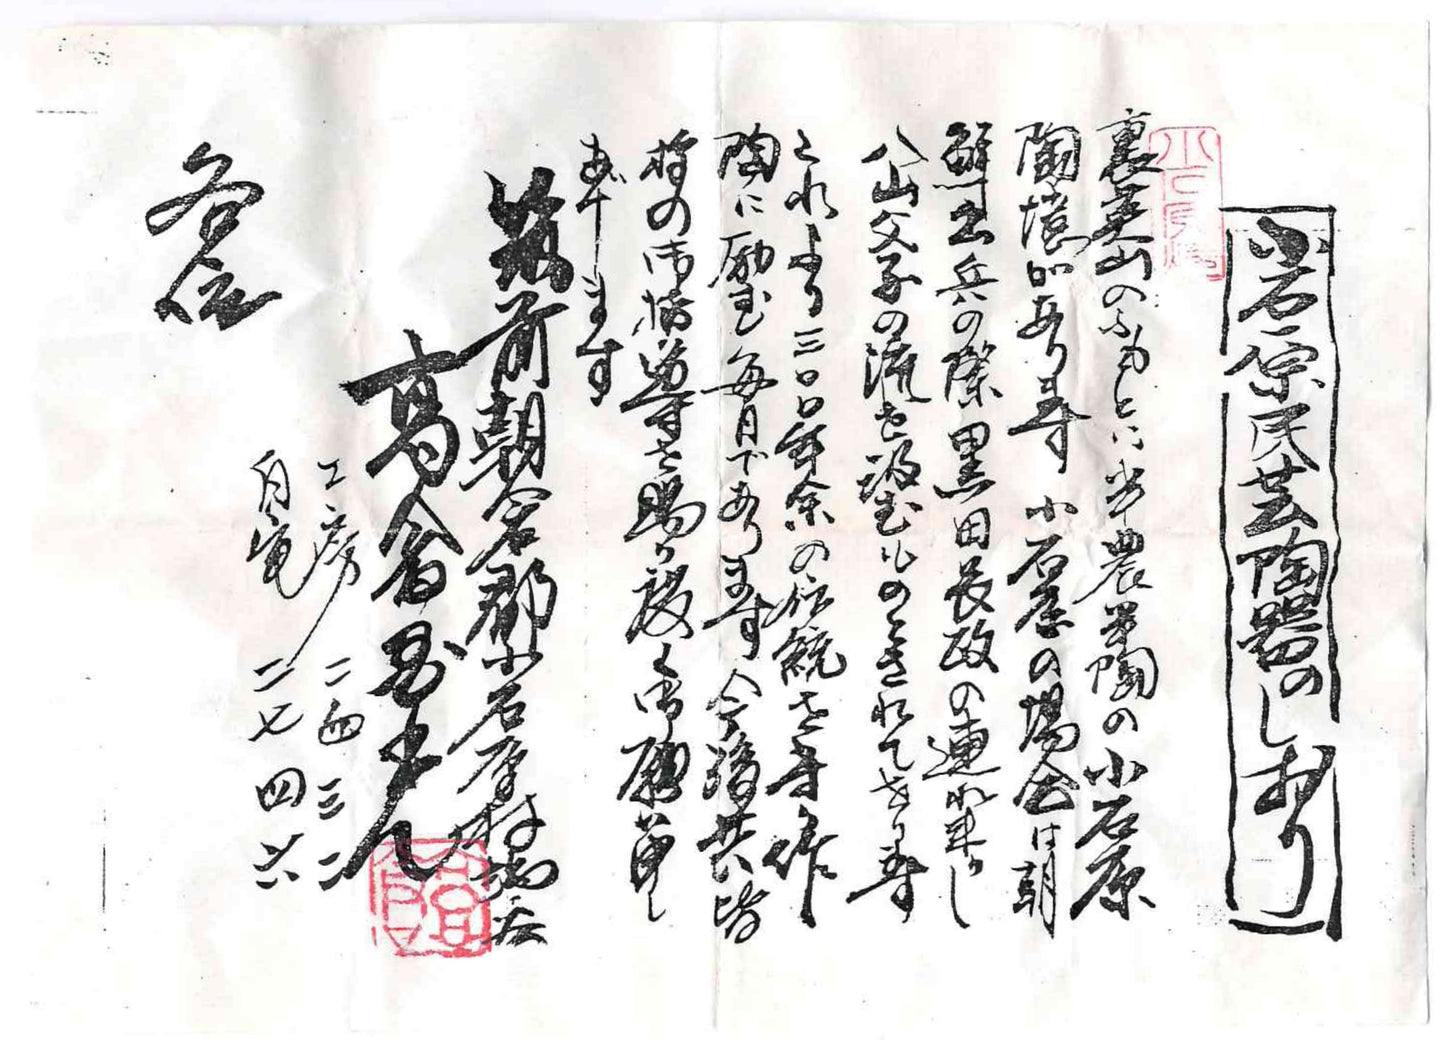 小石原民芸陶器のしおり
裏英山のふもとに半農半陶の小石原
陶境があります 小石原の場合は朝
鮮出兵の際黒田長政の連れ来りし
八山父子の流を汲むものとされております
これより三〇〇年余の伝統を守り作
陶に励む毎日であります 今後共皆
様の御指導を賜り度く御願申し
あげます
筑前朝倉郡小石原村
高倉
工房 二四三二
自宅 二七四六